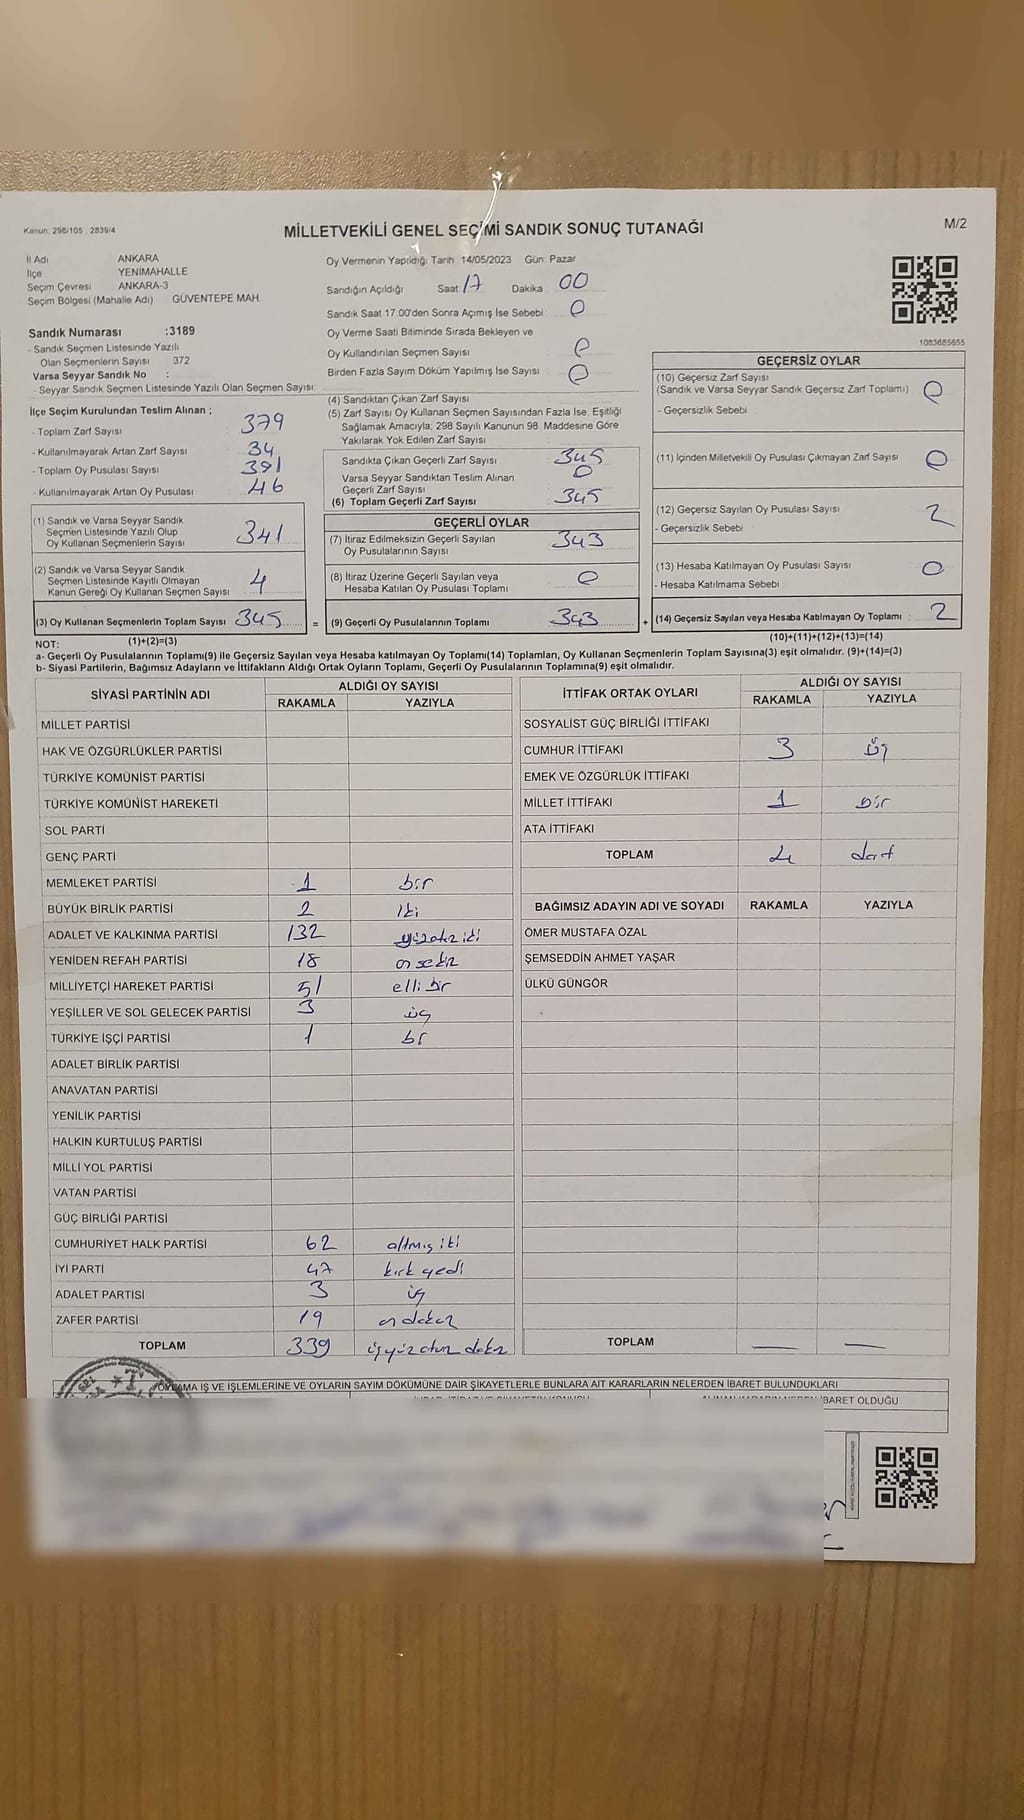 Kanun: 298/105 , 2839/4
MİLLETVEKİLİ GENEL SEÇİMİ SANDIK SONUÇ TUTANAĞI
M/2
İl Adı ANKARA
İlçe YENİMAHALLE
Seçim Çevresi ANKARA-3
Seçim Bölgesi (Mahalle Adı) GÜVENTEPE MAH.
Sandık Numarası :3189
- Sandık Seçmen Listesinde Yazılı
Olan Seçmenlerin Sayısı 372
Varsa Seyyar Sandık No :
- Seyyar Sandık Seçmen Listesinde Yazılı Olan Seçmen Sayısı:
İlçe Seçim Kurulundan Teslim Alınan ;
- Toplam Zarf Sayısı 379
- Kullanılmayarak Artan Zarf Sayısı 34
- Toplam Oy Pusulası Sayısı 391
- Kullanılmayarak Artan Oy Pusulası 46
(1) Sandık ve Varsa Seyyar Sandık
Seçmen Listesinde Yazılı Olup
Oy Kullanan Seçmenlerin Sayısı 341
(2) Sandık ve Varsa Seyyar Sandık
Seçmen Listesinde Kayıtlı Olmayan
Kanun Gereği Oy Kullanan Seçmen Sayısı 4
(3) Oy Kullanan Seçmenlerin Toplam Sayısı 345 =
Oy Vermenin Yapıldığı Tarih 14/05/2023 Gün: Pazar
Sandığın Açıldığı Saat 17 Dakika 00
Sandık Saat 17.00'den Sonra Açımış İse Sebebi: 0
Oy Verme Saati Bitiminde Sırada Bekleyen ve
Oy Kullandırılan Seçmen Sayısı 0
Birden Fazla Sayım Döküm Yapılmış İse Sayısı 0
(4) Sandıktan Çıkan Zarf Sayısı
(5) Zarf Sayısı Oy Kullanan Seçmen Sayısından Fazla İse, Eşitliği
Sağlamak Amacıyla; 298 Sayılı Kanunun 98. Maddesine Göre
Yakılarak Yok Edilen Zarf Sayısı
Sandıkta Çıkan Geçerli Zarf Sayısı 345
Varsa Seyyar Sandıktan Teslim Alınan
Geçerli Zarf Sayısı 0
(6) Toplam Geçerli Zarf Sayısı 345
GEÇERLİ OYLAR
(7) İtiraz Edilmeksizin Geçerli Sayılan
Oy Pusulalarının Sayısı 343
(8) İtiraz Üzerine Geçerli Sayılan veya
Hesaba Katılan Oy Pusulası Toplamı 0
(9) Geçerli Oy Pusulalarının Toplamı 343 +
1083685655
GEÇERSİZ OYLAR
(10) Geçersiz Zarf Sayısı
(Sandık ve Varsa Seyyar Sandık Geçersiz Zarf Toplamı) 0
- Geçersizlik Sebebi
(11) İçinden Milletvekili Oy Pusulası Çıkmayan Zarf Sayısı 0
(12) Geçersiz Sayılan Oy Pusulası Sayısı 2
- Geçersizlik Sebebi
(13) Hesaba Katılmayan Oy Pusulası Sayısı 0
- Hesaba Katılmama Sebebi
(14) Geçersiz Sayılan veya Hesaba Katılmayan Oy Toplamı : 2
NOT: (1)+(2)=(3) (10)+(11)+(12)+(13)=(14)
a- Geçerli Oy Pusulalarının Toplamı(9) ile Geçersiz Sayılan veya Hesaba katılmayan Oy Toplamı(14) Toplamları, Oy Kullanan Seçmenlerin Toplam Sayısına(3) eşit olmalıdır. (9)+(14)=(3)
b- Siyasi Partilerin, Bağımsız Adayların ve İttifakların Aldığı Ortak Oyların Toplamı, Geçerli Oy Pusulalarının Toplamına(9) eşit olmalıdır.
SİYASİ PARTİNİN ADI ALDIĞI OY SAYISI
RAKAMLA YAZIYLA
MİLLET PARTİSİ
HAK VE ÖZGÜRLÜKLER PARTİSİ
TÜRKİYE KOMÜNİST PARTİSİ
TÜRKİYE KOMÜNİST HAREKETİ
SOL PARTİ
GENÇ PARTİ
MEMLEKET PARTİSİ 1 bir
BÜYÜK BİRLİK PARTİSİ 2 iki
ADALET VE KALKINMA PARTİSİ 132 yüzotuziki
YENİDEN REFAH PARTİSİ 18 onsekiz
MİLLİYETÇİ HAREKET PARTİSİ 51 elli bir
YEŞİLLER VE SOL GELECEK PARTİSİ 3 üç
TÜRKİYE İŞÇİ PARTİSİ 1 bir
ADALET BİRLİK PARTİSİ
ANAVATAN PARTİSİ
YENİLİK PARTİSİ
HALKIN KURTULUŞ PARTİSİ
MİLLİ YOL PARTİSİ
VATAN PARTİSİ
GÜÇ BİRLİĞİ PARTİSİ
CUMHURİYET HALK PARTİSİ 62 altmış iki
İYİ PARTİ 47 kırk yedi
ADALET PARTİSİ 3 üç
ZAFER PARTİSİ 19 on dokuz
TOPLAM 339 üçyüz otuz dokuz
İTTİFAK ORTAK OYLARI ALDIĞI OY SAYISI
RAKAMLA YAZIYLA
SOSYALİST GÜÇ BİRLİĞİ İTTİFAKI
CUMHUR İTTİFAKI 3 üç
EMEK VE ÖZGÜRLÜK İTTİFAKI
MİLLET İTTİFAKI 1 bir
ATA İTTİFAKI
TOPLAM 4 dört
BAĞIMSIZ ADAYIN ADI VE SOYADI RAKAMLA YAZIYLA
ÖMER MUSTAFA ÖZAL
ŞEMSEDDİN AHMET YAŞAR
ÜLKÜ GÜNGÖR
TOPLAM — —
OYLAMA İŞ VE İŞLEMLERİNE VE OYLARIN SAYIM DÖKÜMÜNE DAİR ŞİKAYETLERLE BUNLARA AİT KARARLARIN NELERDEN İBARET BULUNDUKLARI
ALINAN KARARIN NEDEN İBARET OLDUĞU